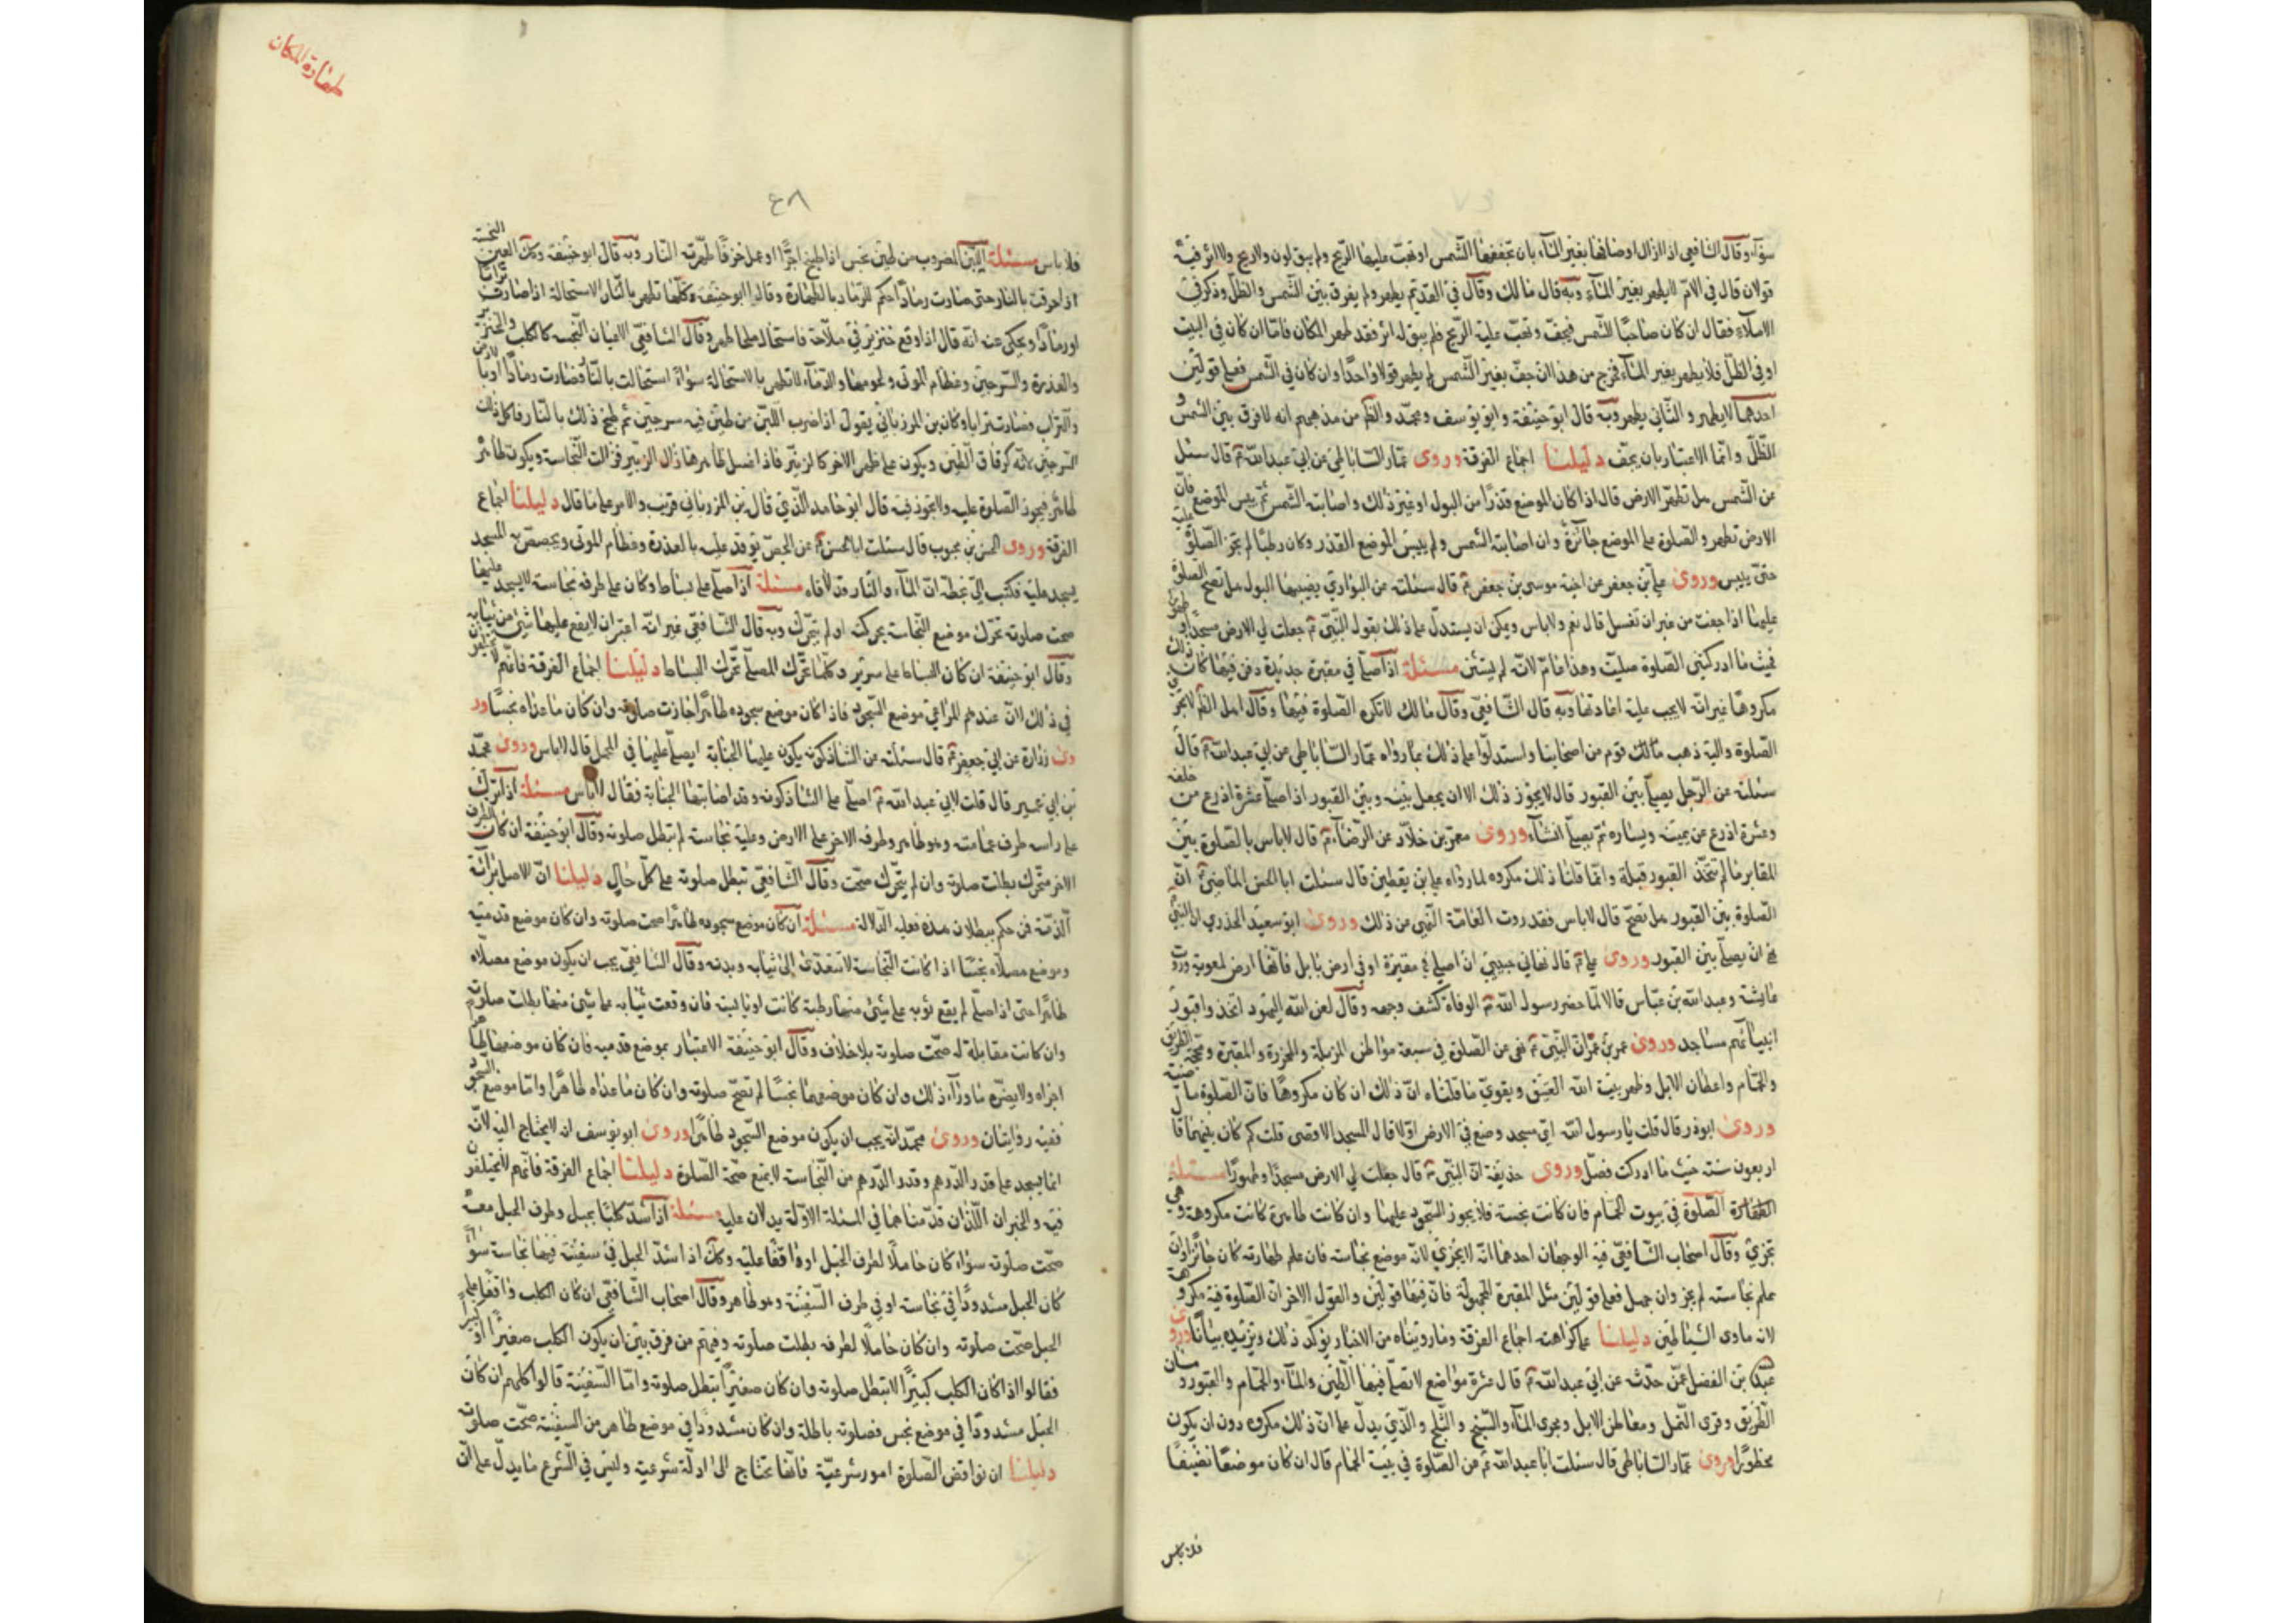 سواء وقال الشافعي اذا زال اوصافها بغير الماء بان تجففها الشمس او تهب عليها الريح ولم يبق لون ولا ريح ولا اثر فيه
قولان قال في الام لا يطهر بغير الماء وبه قال مالك وقال في القديم يطهر ولم يفرق بين الشمس والظل وذكر في
الاملاء فقال ان كان ضاحيا للشمس فيجف وتهب عليه الريح فلم يبق له اثر فقد طهر المكان فاما ان كان في البيت
او في الظل فلا يطهر بغير الماء فخرج من هذا ان جف بغير الشمس لم يطهر قولا واحدا وان كان في الشمس فعلى قولين
احدهما لا يطهر والثاني يطهر وبه قال ابو حنيفة وابو يوسف ومحمد والظ من مذهبهم انه لا فرق بين الشمس و
الظل وانما الاعتبار بان يجف دليلنا اجماع الفرقة وروى عمار الساباطي عن ابي عبد الله ع قال سئل
عن الشمس هل تطهر الارض قال اذا كان الموضع قذرا من البول او غير ذلك واصابته الشمس ثم يبس الموضع
الارض تطهر والصلوة على الموضع جائزة وان اصابته الشمس ولم ييبس الموضع القذر وكان رطبا لم تجز الصلوة عليه
حتى ييبس وروى علي بن جعفر عن اخيه موسى بن جعفر ع قال سئلته عن البواري يصيبها البول هل تصح الصلوة
عليها اذا جفت من غير ان تغسل قال نعم ولا باس ويمكن ان يستدل على ذلك بقول النبي ع جعلت لي الارض مسجدا وطهورا
فحيث ما ادركتني الصلوة صليت وهذا عام لانه لم يستثن مسئلة اذا صلى في مقبرة جديدة دفن فيها كان ذلك
مكروها غير انه لا يجب عليه اعادتها وبه قال الشافعي وقال مالك لا تكره الصلوة فيها وقال اهل الظ لا تجزى
الصلوة واليه ذهب قوم من اصحابنا واستدلوا على ذلك بما رواه عمار الساباطي عن ابي عبد الله ع قال
سئلته عن الرجل يصلي بين القبور قال لا يجوز ذلك الا ان يجعل بينه وبين القبور اذا صلى عشرة اذرع من خلفه
وعشرة اذرع عن يمينه ويساره ثم يصلي انشاء وروى معمر بن خلاد عن الرضا ع قال لا باس بالصلوة بين
المقابر ما لم تتخذ القبور قبلة وانما قلنا ذلك مكروه لما رواه علي بن يقطين قال سئلت ابا الحسن الماضي ع عن
الصلوة بين القبور هل تصح قال لا باس فقد روت العامة النهي عن ذلك وروى ابو سعيد الخدري ان النبي ع
نهى ان يصلي بين القبور وروى علي ع قال نهاني حبيبي ان اصلي في مقبرة او في ارض بابل فانها ارض ملعونة وروت
عايشة وعبد الله بن عباس قالا لما حضر رسول الله ع الوفاة كشف وجهه وقال لعن الله اليهود اتخذوا قبور
انبيائهم مساجد وروى عمر ان النبي ع نهى عن الصلوة في سبعة مواطن المزبلة والمجزرة والمقبرة ومحجة الطريق
والحمام واعطان الابل وظهر بيت الله العتيق ويقوى ما قلناه ان ذلك ان كان مكروها فان الصلوة ماضية
وروى ابوذر قال قلت يا رسول الله اي مسجد وضع في الارض اولا قال المسجد الاقصى قلت كم كان بينهما قال
اربعون سنة حيث ما ادركت فصل وروى حذيفة ان النبي ع قال جعلت لي الارض مسجدا وطهورا مسئلة
الصلوة في بيوت الحمام فان كانت نجسة فلا يجوز السجود عليها وان كانت طاهرة كانت مكروهة وهي
تجزى وقال اصحاب الشافعي فيه الوجهان احدهما انه لا يجزى لانه موضع نجاسة فان علم طهارته كان جائزا وان
علم نجاسته لم يجز وان جهل فعلى قولين مثل المقبرة المجهولة فان فيها قولين والقول الاخر ان الصلوة فيه مكروهة
لانه ماوى الشياطين دليلنا على كراهته اجماع الفرقة وما رويناه من الاخبار يؤكد ذلك ويزيده بيانا وروى
عبد الله بن الفضل عمن حدثه عن ابي عبد الله ع قال عشرة مواضع لا تصلى فيها الطين والماء والحمام والقبور ومسان
الطريق وقرى النمل ومعاطن الابل ومجرى الماء والسبخ والثلج والذي يدل على ان ذلك مكروه دون ان يكون
محظورا وروى عمار الساباطي قال سئلت ابا عبد الله ع عن الصلوة في بيت الحمام قال ان كان موضعا نظيفا
فلا باس
طهارة المكان
٤٨
فلا باس مسئلة اللبن المضروب من طين نجس اذا طبخ اجرا او عمل خزفا طهرته النار وبه قال ابو حنيفة وكذلك العين النجسة
اذا احرقت بالنار حتى صارت رمادا حكم للرماد بالطهارة وقال ابو حنيفة وكلها تطهر بالنار الاستحالة اذا صارت ترابا
او رمادا وحكي عنه انه قال اذا وقع خنزير في ملاحة فاستحال ملحا طهر وقال الشافعي الاعيان النجسة كالكلب والخنزير
والعذرة والسرجين وعظام الموتى ولحومها والدماء لا تطهر بالاستحالة سواء استحالت بالنار فصارت رمادا او بالارض
والتراب فصارت ترابا وكان بن المرزباني يقول اذا ضرب اللبن من طين فيه سرجين ثم طبخ ذلك بالنار فاكل ذلك
السرجين لانه كرقاق الطين ويكون على ظهر الاخر كالزبير فاذا غسل ظاهرها زال الزبير فزالت النجاسة ويكون ظاهره
طاهرا فيجوز الصلوة عليه ولا يجوز فيه قال ابو حامد الذي قال بن المرزباني قريب والامر على ما قال دليلنا اجماع
الفرقة وروى الحسن بن محبوب قال سئلت ابا الحسن ع عن الجص توقد عليه بالعذرة وعظام الموتى ويجصص به المسجد
يسجد عليه فكتب الي بخطه ان الماء والنار قد طهراه مسئلة اذا صلى على بساط وكان على طرفه نجاسة لا يسجد عليها
صحت صلوته تحرك موضع النجاسة بحركته او لم يتحرك وبه قال الشافعي غير انه اعتبر ان لا يقع عليها شيء من ثيابه
وقال ابو حنيفة ان كان البساط على سرير وكلما تحرك المصلي تحرك البساط دليلنا اجماع الفرقة فانهم لا يختلفون
في ذلك لان عندهم المراعي موضع السجود فاذا كان موضع سجوده طاهرا جازت صلوته وان كان ما عداه نجسا ور
وى زرارة عن ابي جعفر ع قال سئلته عن الشاذكونه يكون عليها الجنابة ايصلي عليها في المحمل قال لا باس وروى محمد
بن ابي عمير قال قلت لابي عبد الله ع اصلي على الشاذكونه وقد اصابتها الجنابة فقال لا باس مسئلة اذا ترك
على راسه طرف عمامته وهو طاهر وطرفه الاخر على الارض وعليه نجاسة لم تبطل صلوته وقال ابو حنيفة ان كان الطرف
الاخر متحرك بطلت صلوته وان لم يتحرك صحت وقال الشافعي تبطل صلوته على كل حال دليلنا ان الاصل برائة
الذمة فمن حكم ببطلان هذه فعليه الدلالة مسئلة ان كان موضع سجوده طاهرا صحت صلوته وان كان موضع قدميه
وموضع مصلاه نجسا اذا كانت النجاسة لا تتعدى الى ثيابه وبدنه وقال الشافعي يجب ان يكون موضع مصلاه
طاهرا حتى اذا صلى لم يقع ثوبه على شيء منها رطبة كانت او يابسة فان وقعت ثيابه على شيء منها بطلت صلوته
وان كانت مقابلة له صحت صلوته بلا خلاف وقال ابو حنيفة الاعتبار بموضع قدميه فان كان موضعهما طاهرا
اجزاه ولا يضره ما وراء ذلك وان كان موضعهما نجسا لم تصح صلوته وان كان ما عداه طاهرا واما موضع السجود
ففيه روايتان وروى محمد انه يجب ان يكون موضع السجود طاهرا وروى ابو يوسف انه لا يحتاج اليه لانه
انما يسجد على قدر الدرهم وقدر الدرهم من النجاسة لا يمنع صحة الصلوة دليلنا اجماع الفرقة فانهم لا يختلفون
فيه والخبران اللذان قدمناهما في المسئلة الاولة يدلان عليه مسئلة اذا شد كلبا بحبل وطرف الحبل معه
صحت صلوته سواء كان حاملا لطرف الحبل او واقفا عليه وكذلك اذا شد الحبل في سفينة فيها نجاسة سواء
كان الحبل مشدودا في نجاسة او في طرف السفينة وهو طاهر وقال اصحاب الشافعي ان كان الكلب واقفا على
الحبل صحت صلوته وان كان حاملا لطرفه بطلت صلوته وفيهم من فرق بين ان يكون الكلب صغيرا او كبيرا
فقالوا اذا كان الكلب كبيرا لا تبطل صلوته وان كان صغيرا تبطل صلوته واما السفينة قالوا كلهم ان كان
الحبل مشدودا في موضع نجس فصلوته باطلة وان كان مشدودا في موضع طاهر من السفينة صحت صلوته
دليلنا ان نواقض الصلوة امور شرعية فانها تحتاج الى ادلة شرعية وليس في الشرع ما يدل على ان